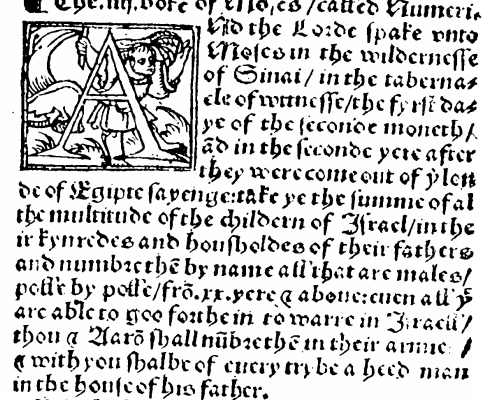 The.iiij.boke of Moses/called Numeri.
ANd the Lorde spake vnto
Moses in the wildernesse
of Sinai/in the taberna⸗
cle of wittnesse/the fyrst da⸗
ye of the seconde moneth/
ãd in the seconde yere after
they were come out of yͤ lon
de of Egipte sayenge:take ye the summe of al
the multitude of the childern of Israel/in the
ir kynredes and housholdes of their fathers
and numbre thẽ by name all that are males/
polle by polle/frõ.xx.yere ⁊ aboue:euen all yͭ
are able to goo forthe in to warre in Israell/
thou ⁊ Aarõ shall nũbre thẽ in their armies/
⁊ with you shalbe of euery trybe a heed man
in the house of his father.